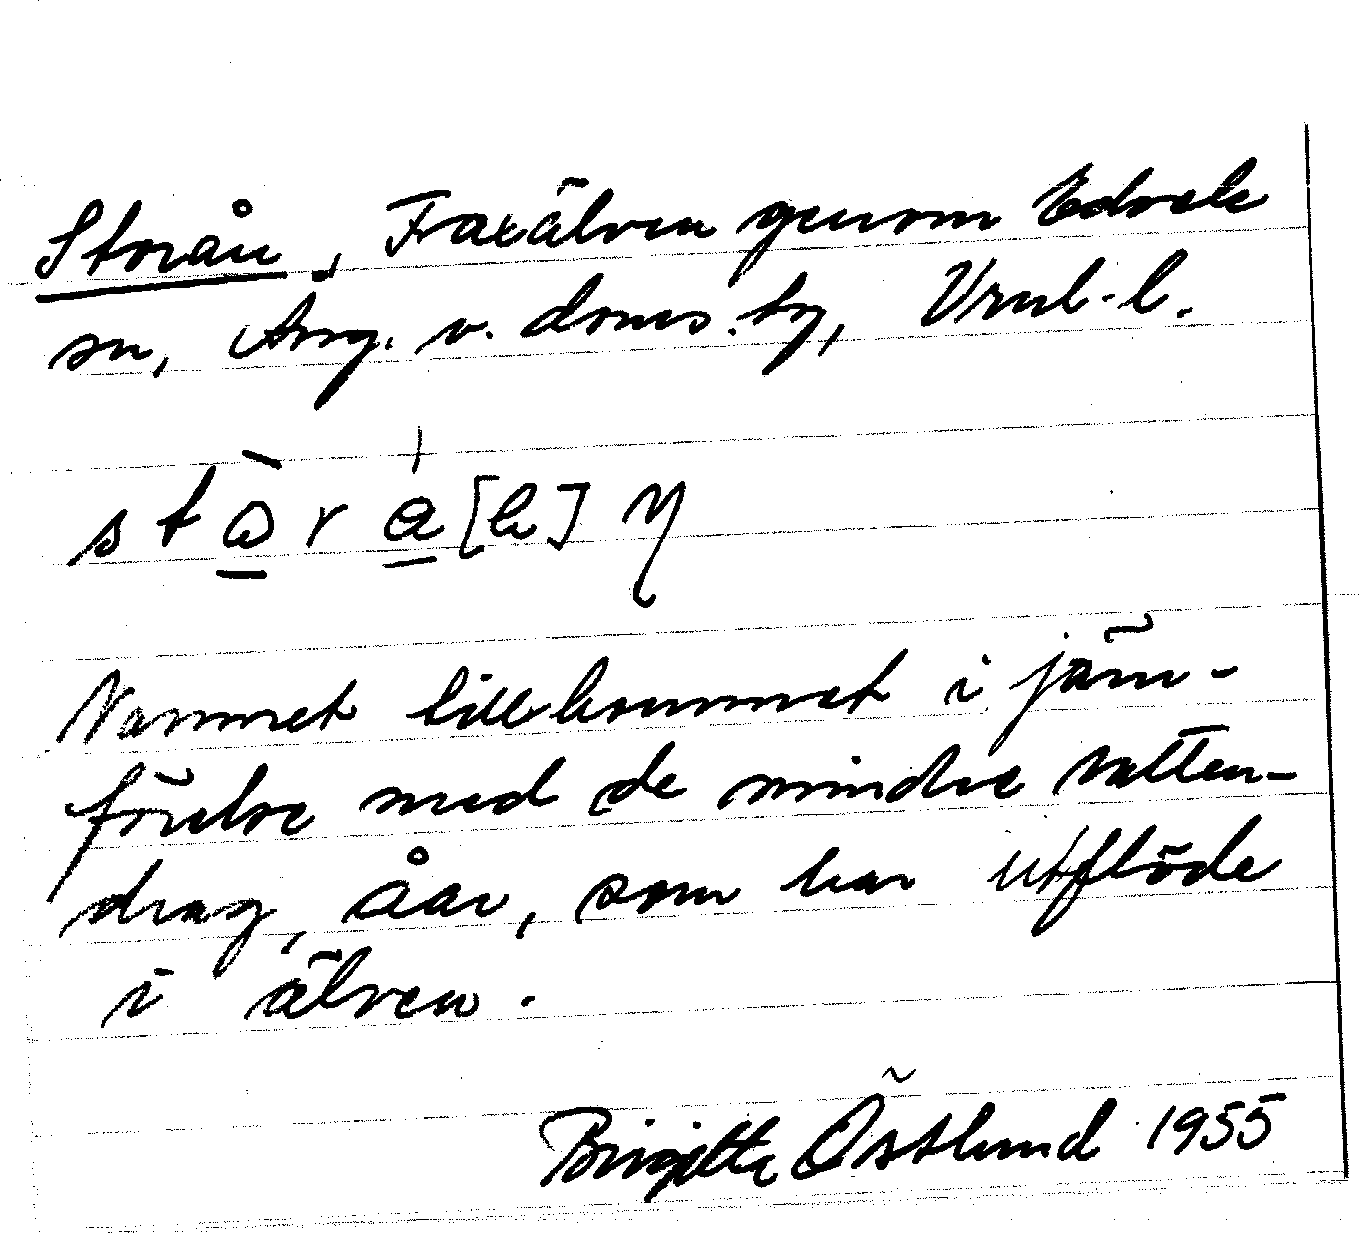 Storån, Faxälven genom Edsele
sn, Ång. v. doms. by, Vrnl. l.
Namnet tillkommet i jäm-
förelse med de mindre vatten-
drag, åar, som har utflöde
i älven.
Birgitta Östlund 1955